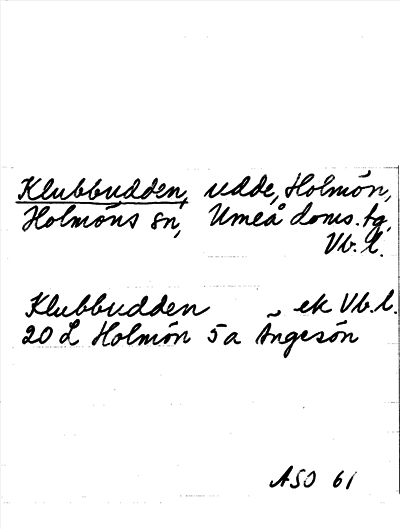 Klubbudden, udde, Holmön,
Holmöns sn, Umeå doms. tg,
Vb. l.
Klubbudden ek Vb. l.
20 L Holmön 5 a Ängesön
ASO 61